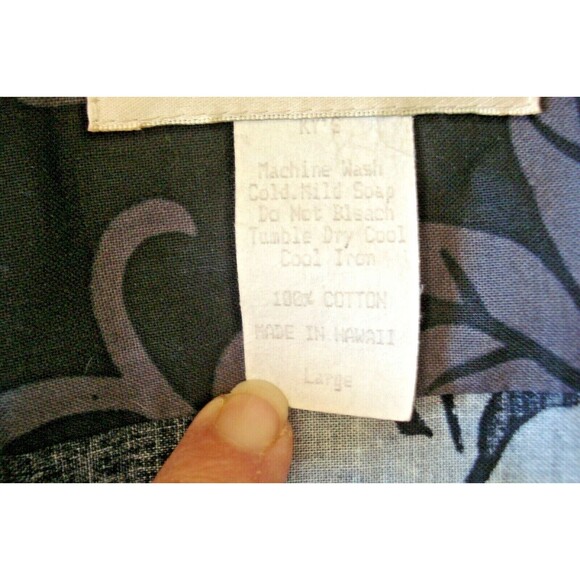 Machine Wash
Cold.Mild Soap
Do Not Bleach
Tumble Dry Cool
Cool Iron
100% COTTON
MADE IN HAWAII
Large